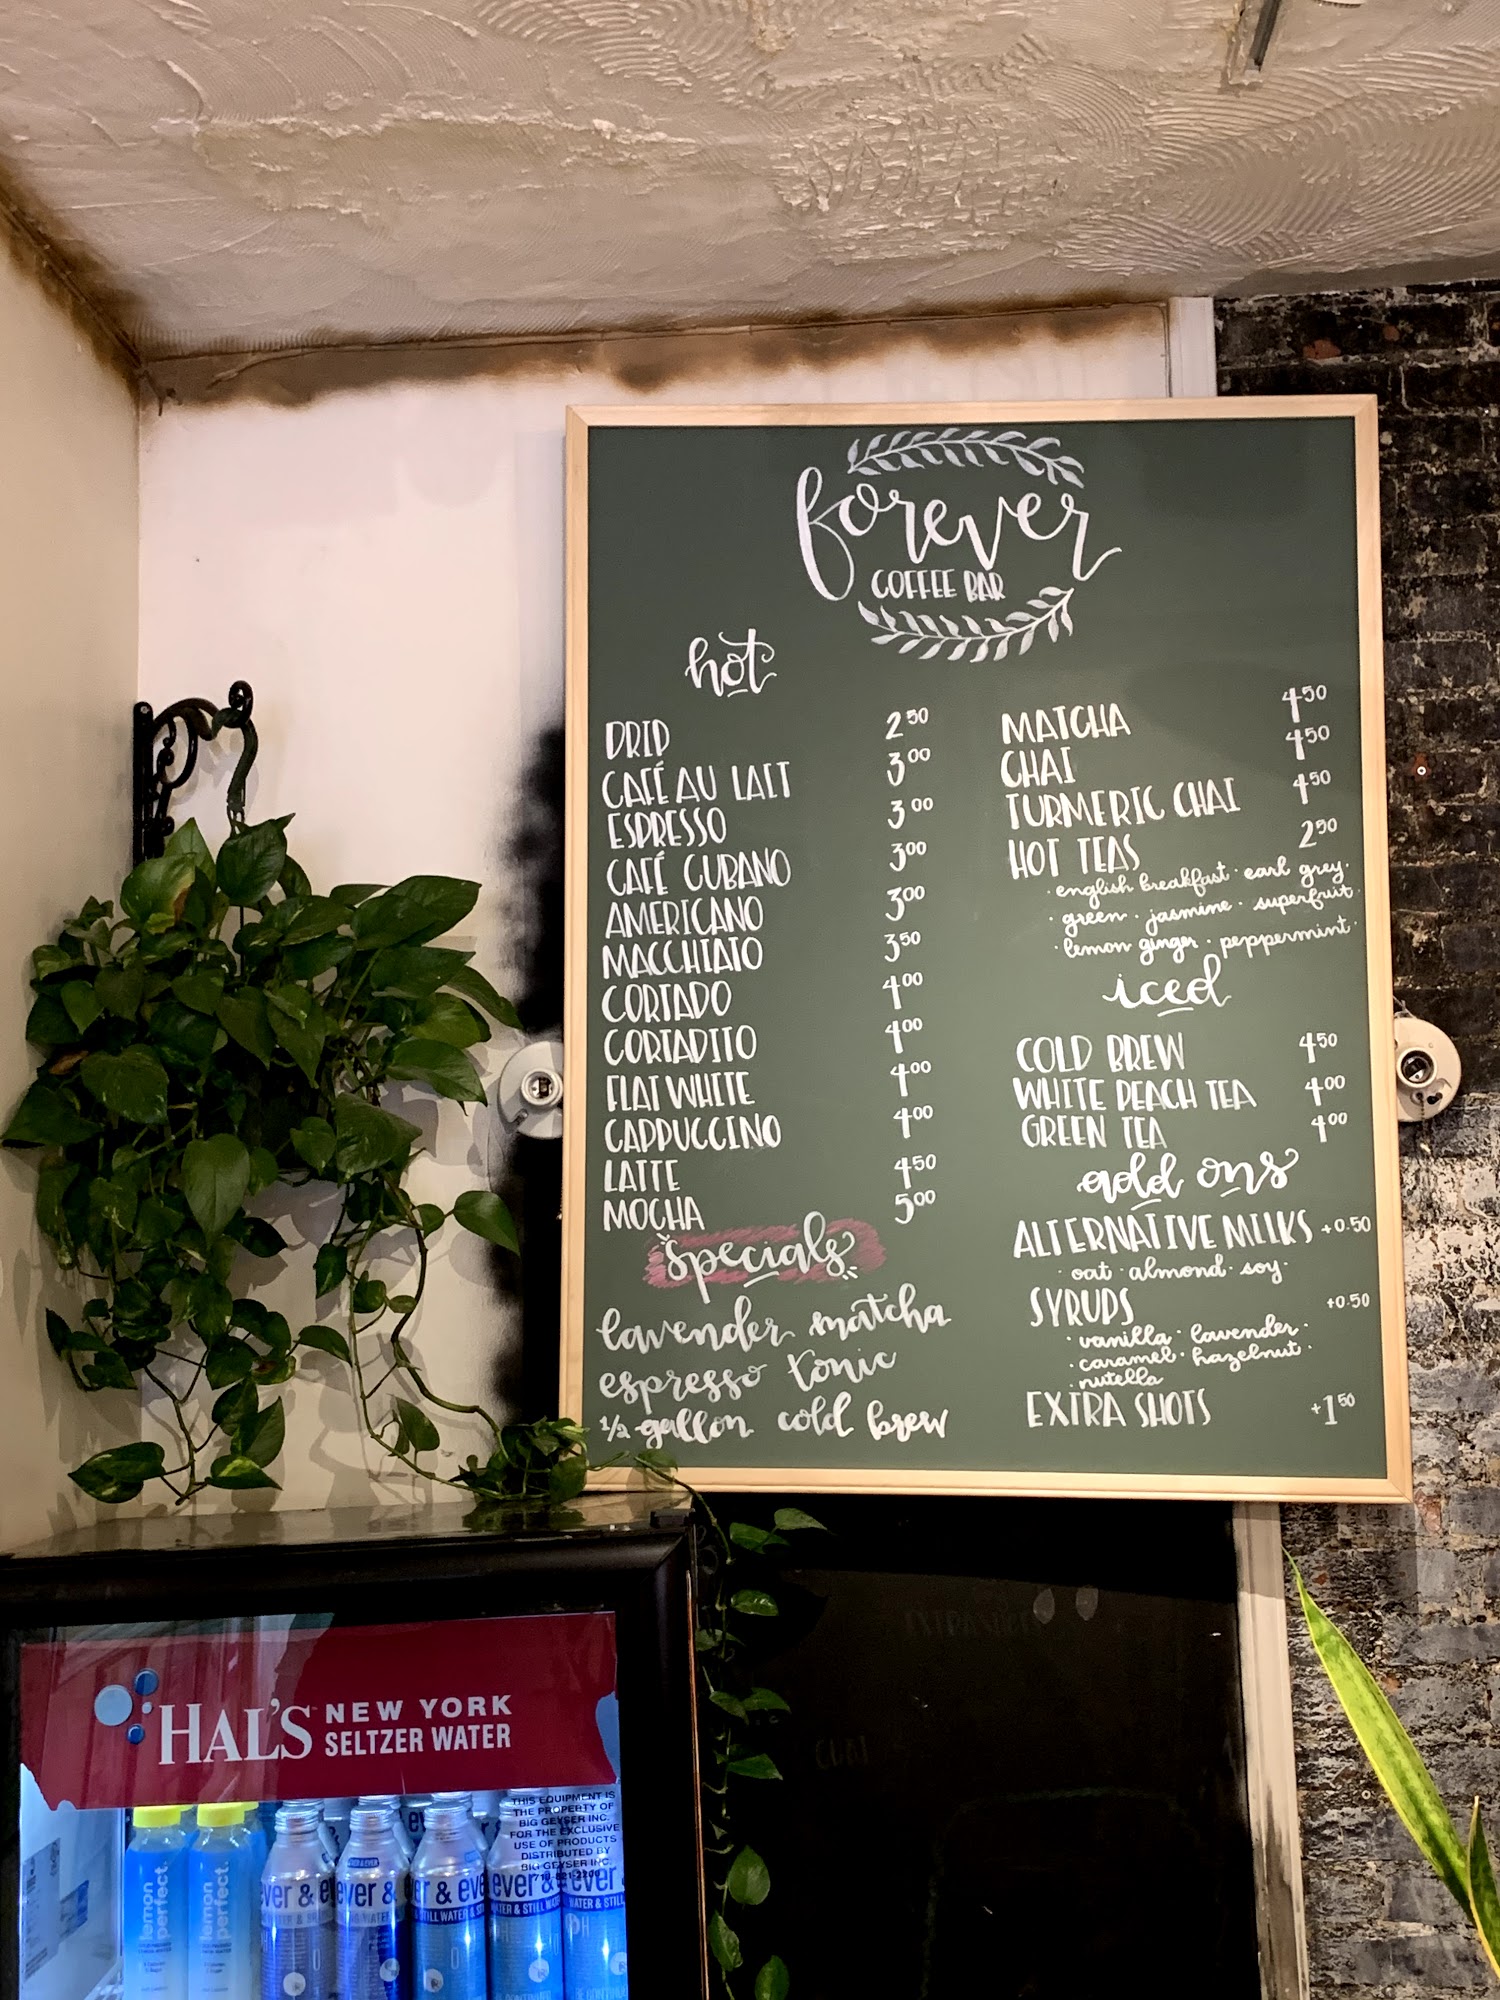 forever
COFFEE BAR
hot
DRIP 2.50
CAFÉ AU LAIT 3.00
ESPRESSO 3.00
CAFÉ CUBANO 3.00
AMERICANO 3.00
MACCHIATO 3.50
CORTADO 4.00
CORTADITO 4.00
FLAT WHITE 4.00
CAPPUCCINO 4.00
LATTE 4.50
MOCHA 5.00
specials
lavender matcha
espresso tonic
1/2 gallon cold brew
MATCHA 4.50
CHAI 4.50
TURMERIC CHAI 4.50
HOT TEAS 2.50
· english breakfast · earl grey ·
· green · jasmine · superfruit ·
· lemon ginger · peppermint ·
iced
COLD BREW 4.50
WHITE PEACH TEA 4.00
GREEN TEA 4.00
add ons
ALTERNATIVE MILKS +0.50
· oat · almond · soy ·
SYRUPS +0.50
· vanilla · lavender ·
· caramel · hazelnut ·
· nutella
EXTRA SHOTS +1.50
HAL'S NEW YORK
SELTZER WATER
THIS EQUIPMENT IS
THE PROPERTY OF
BIG GEYSER INC.
FOR THE EXCLUSIVE
USE OF PRODUCTS
DISTRIBUTED BY
BIG GEYSER INC.
lemon perfect.
lemon perfect.
ever & ever
ever &
ever & ever
ever &
ever &